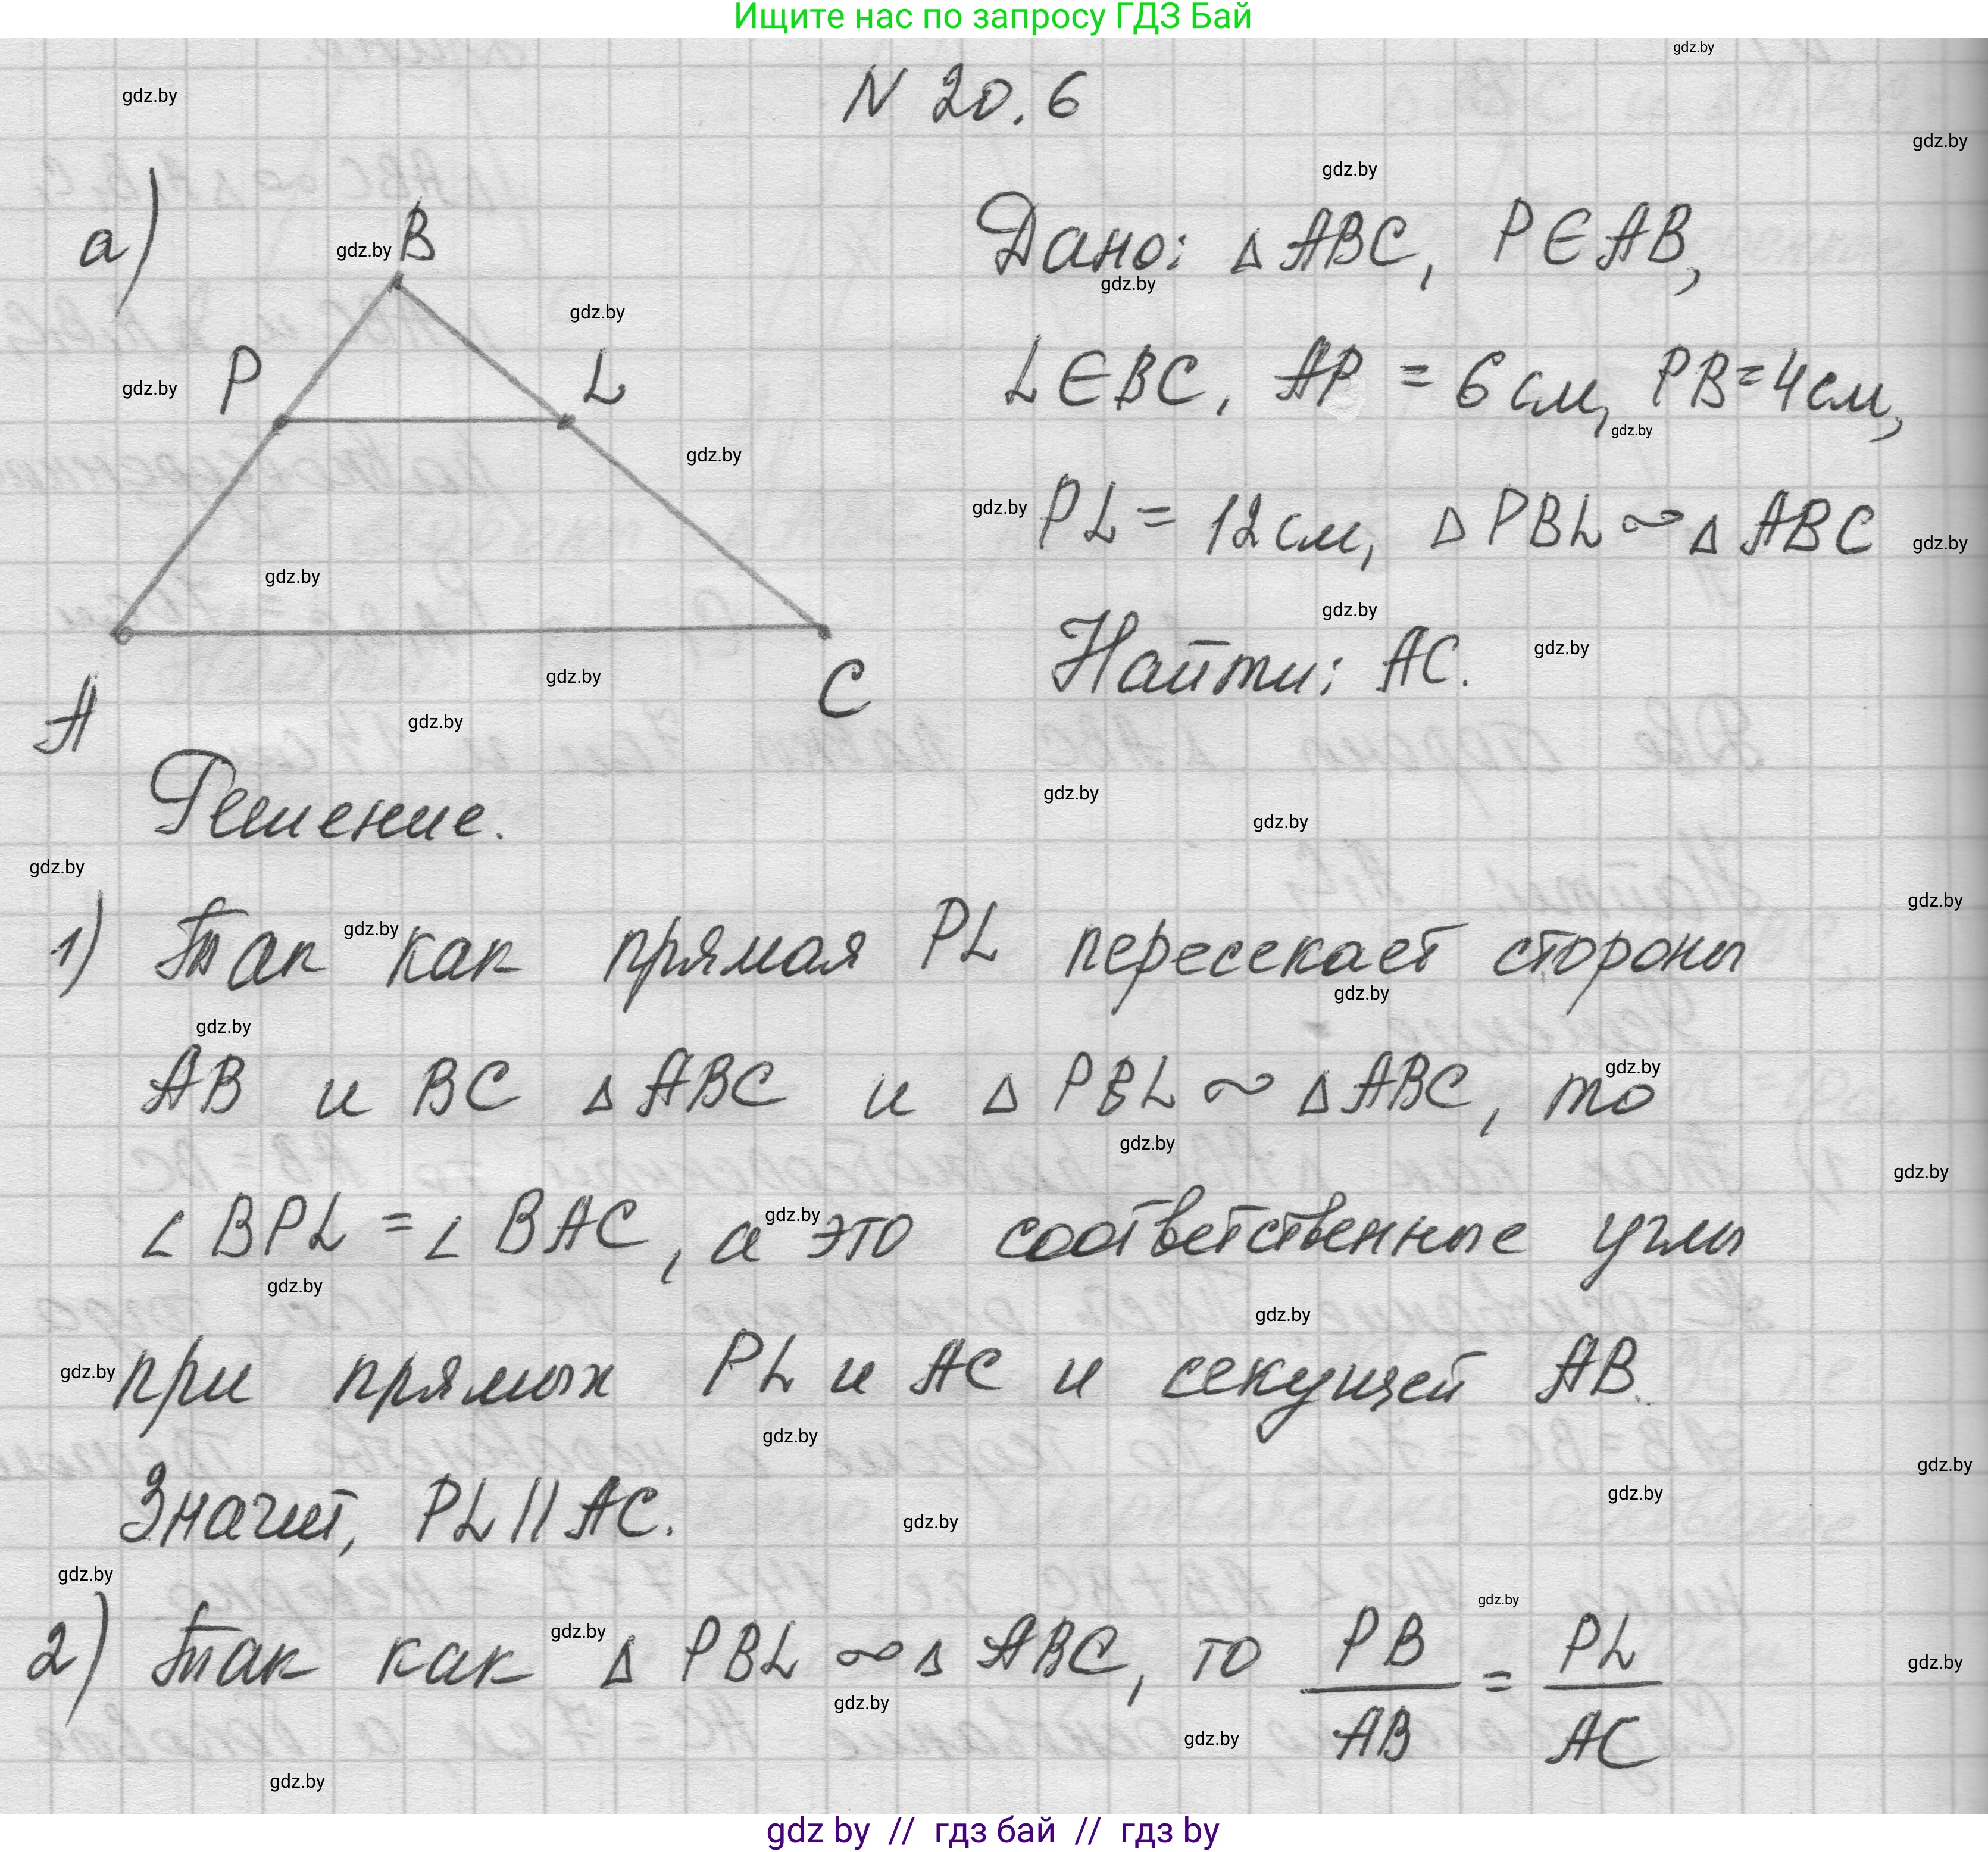 Ищите нас по запросу ГДЗ Бай
N 20.6
а)
B
P
L
A
C
Дано: △ABC, P∈AB,
L∈BC, AP = 6 см, PB=4см,
PL = 12 см, △PBL ∾ △ABC
Найти: AC.
Решение.
1) Так как прямая PL пересекает стороны
AB и BC △ABC и △PBL ∾ △ABC, то
∠BPL = ∠BAC, а это соответственные углы
при прямых PL и AC и секущей AB.
Значит, PL || AC.
2) Так как △PBL ∾ △ABC, то PB/AB = PL/AC
gdz by // гдз бай // гдз by